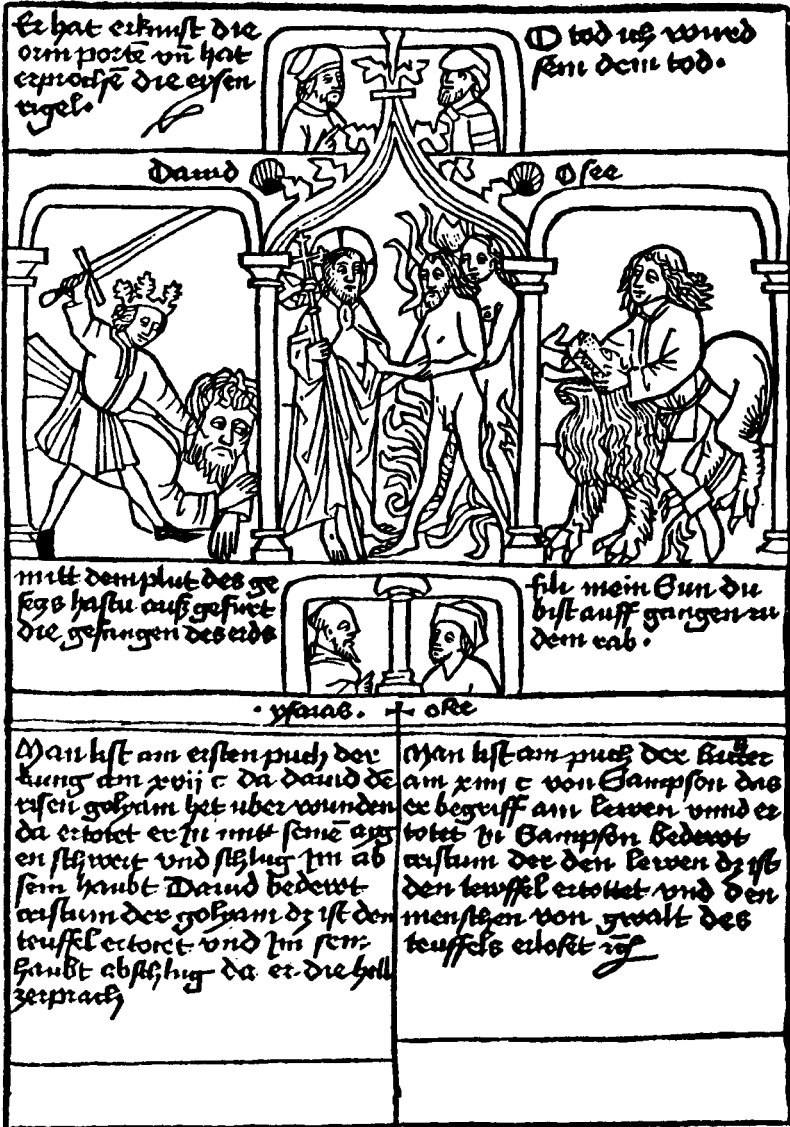 Er hat erknist die
orin porte vn̄ hat
erprochē die eysen
rigel.
O tod ich wurd
sein dein tod.
Dauid
Osee
mitt dem plut des ge
seczs hastu auß gefurt
die gefangen des erds
fili mein Sun du
bist auff gangen zu
dem rab.
ysaias. osee
Man list am ersten puch der
kung am xvij c da dauid dē
risen golyam het uber wunden
da ertotet er In mitt seinē aig
en schwert vnd schlug Im ab
sein haubt Dauid bedewt
cristum der golyam dz ist den
teuffel ertotet vnd Im sein
haubt abschlug da er die hell
zerprach
Man list am puch der Richter
am xiiij c von Sampson das
er begriff ain lewen vnnd er
totet In Sampson bedewt
cristum der den lewen dz ist
den tewffel ertottet vnd den
menschen von gwalt des
teuffels erloset